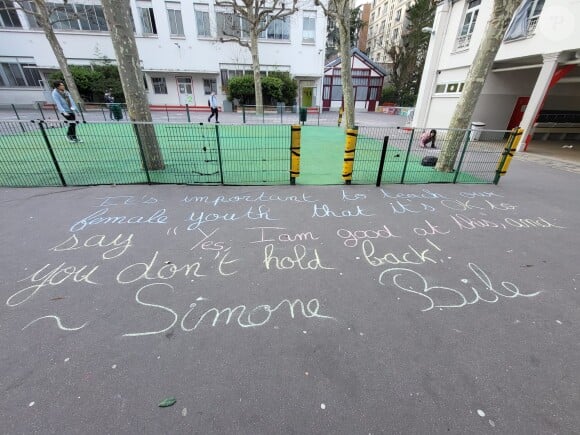 It's important to teach our
female youth that it's OK to
say "Yes, I am good at this, and
you don't hold back!
~ Simone Bile